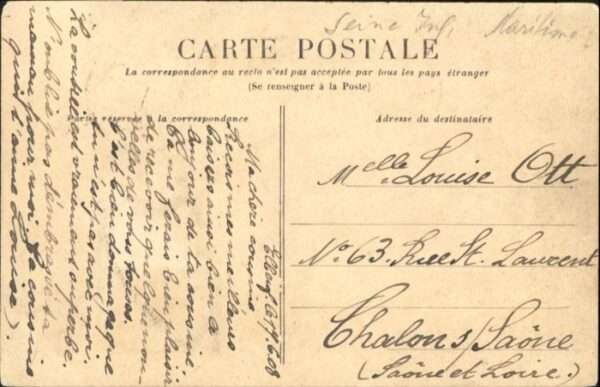 Seine Inf. Maritime
CARTE POSTALE
La correspondance au recto n'est pas acceptée par tous les pays étranger
(Se renseigner à la Poste)
Partie réservée à la correspondance
Adresse du destinataire
Melle Louise Ott
No 63. Rue St. Laurent
Chalons s/Saône
(Saône et Loire.)
Elbeuf le
Ma chère cousine
Recois mes meilleurs
baisers ainsi bien le
bonjour de ta cousine
Ca me ferais bien plaisir
de recevoir quelque nou-
velles de vous toutes.
C'est bien dommage que
tu n'est pas avec moi.
La contrée est vraiment superbe.
N'oublie pas d'embrasser ta
maman pour moi. Ta cousine
qui t'aime Louise).